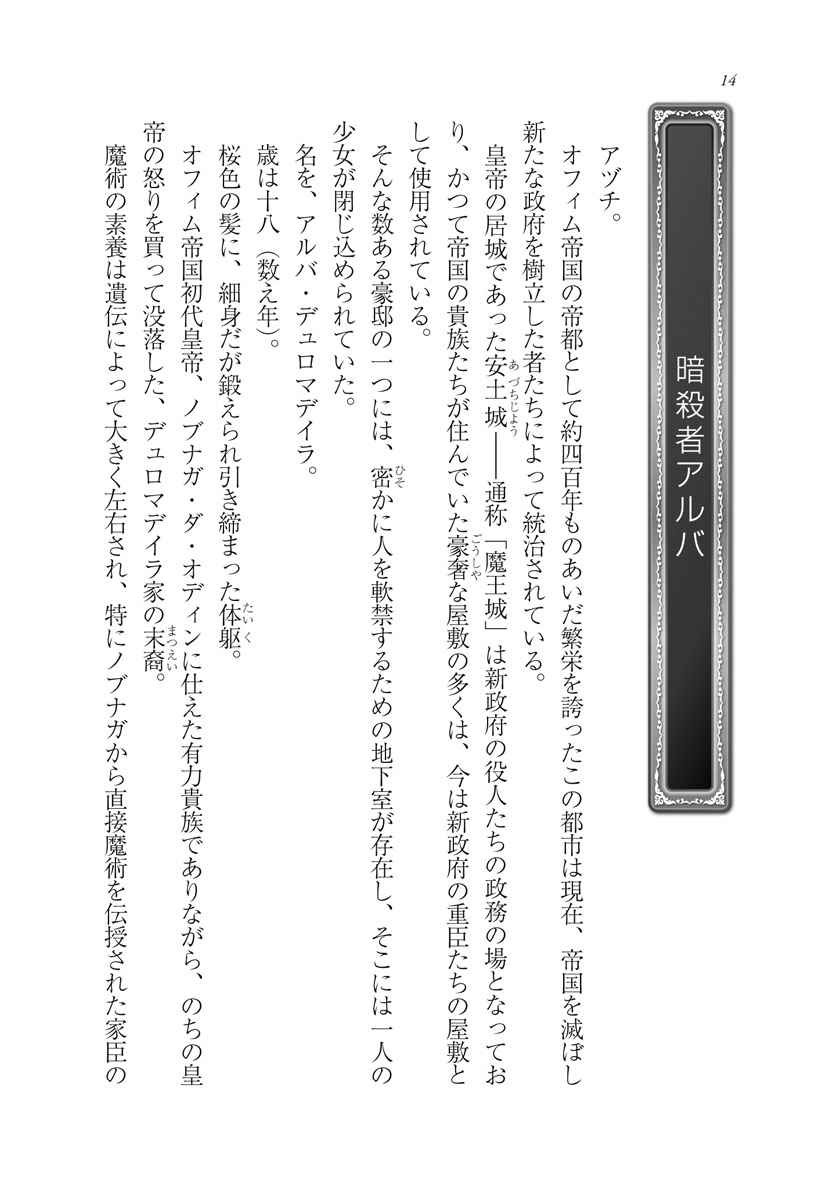 14
暗殺者アルバ
アヅチ。
オフィム帝国の帝都として約四百年ものあいだ繁栄を誇ったこの都市は現在、帝国を滅ぼし
新たな政府を樹立した者たちによって統治されている。
皇帝の居城であった安土城――通称「魔王城」は新政府の役人たちの政務の場となってお
り、かつて帝国の貴族たちが住んでいた豪奢な屋敷の多くは、今は新政府の重臣たちの屋敷と
して使用されている。
そんな数ある豪邸の一つには、密かに人を軟禁するための地下室が存在し、そこには一人の
少女が閉じ込められていた。
名を、アルバ・デュロマデイラ。
歳は十八（数え年）。
桜色の髪に、細身だが鍛えられ引き締まった体躯。
オフィム帝国初代皇帝、ノブナガ・ダ・オディンに仕えた有力貴族でありながら、のちの皇
帝の怒りを買って没落した、デュロマデイラ家の末裔。
魔術の素養は遺伝によって大きく左右され、特にノブナガから直接魔術を伝授された家臣の